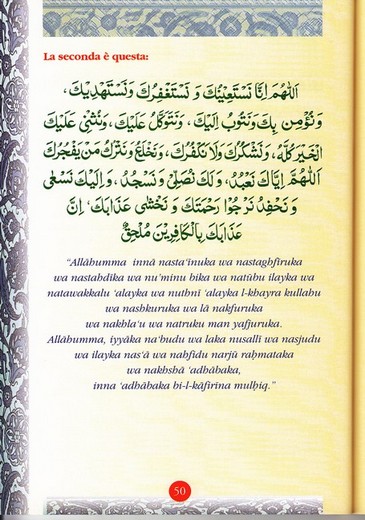 La seconda è questa:
اَللّٰهُمَّ اِنَّا نَسْتَعِينُكَ وَ نَسْتَغْفِرُكَ وَنَسْتَهْدِيكَ،
وَنُؤْمِنُ بِكَ وَنَتُوبُ اِلَيْكَ، وَنَتَوَكَّلُ عَلَيْكَ، وَنُثْنِي عَلَيْكَ
الْخَيْرَ كُلَّهُ، وَنَشْكُرُكَ وَلَا نَكْفُرُكَ، وَنَخْلَعُ وَنَتْرُكُ مَنْ يَفْجُرُكَ
اَللّٰهُمَّ اِيَّاكَ نَعْبُدُ، وَلَكَ نُصَلِّي وَ نَسْجُدُ، وَاِلَيْكَ نَسْعٰى
وَ نَحْفِدُ نَرْجُوا رَحْمَتَكَ وَ نَخْشٰى عَذَابَكَ، اِنَّ
عَذَابَكَ بِالْكَافِرِينَ مُلْحِقٌ
“Allâhumma innâ nasta‘înuka wa nastaghfiruka
wa nastahdîka wa nu’minu bika wa natûbu ilayka wa
natawakkalu ‘alayka wa nuthnî ‘alayka l-khayra kullahu
wa nashkuruka wa lâ nakfuruka
wa nakhla‘u wa natruku man yafjuruka.
Allâhumma, iyyâka na‘budu wa laka nusallî wa nasjudu
wa ilayka nas‘â wa nahfidu narjû raḥmataka
wa nakhshâ ‘adhâbaka,
inna ‘adhâbaka bi-l-kâfirîna mulḥiq.”
50